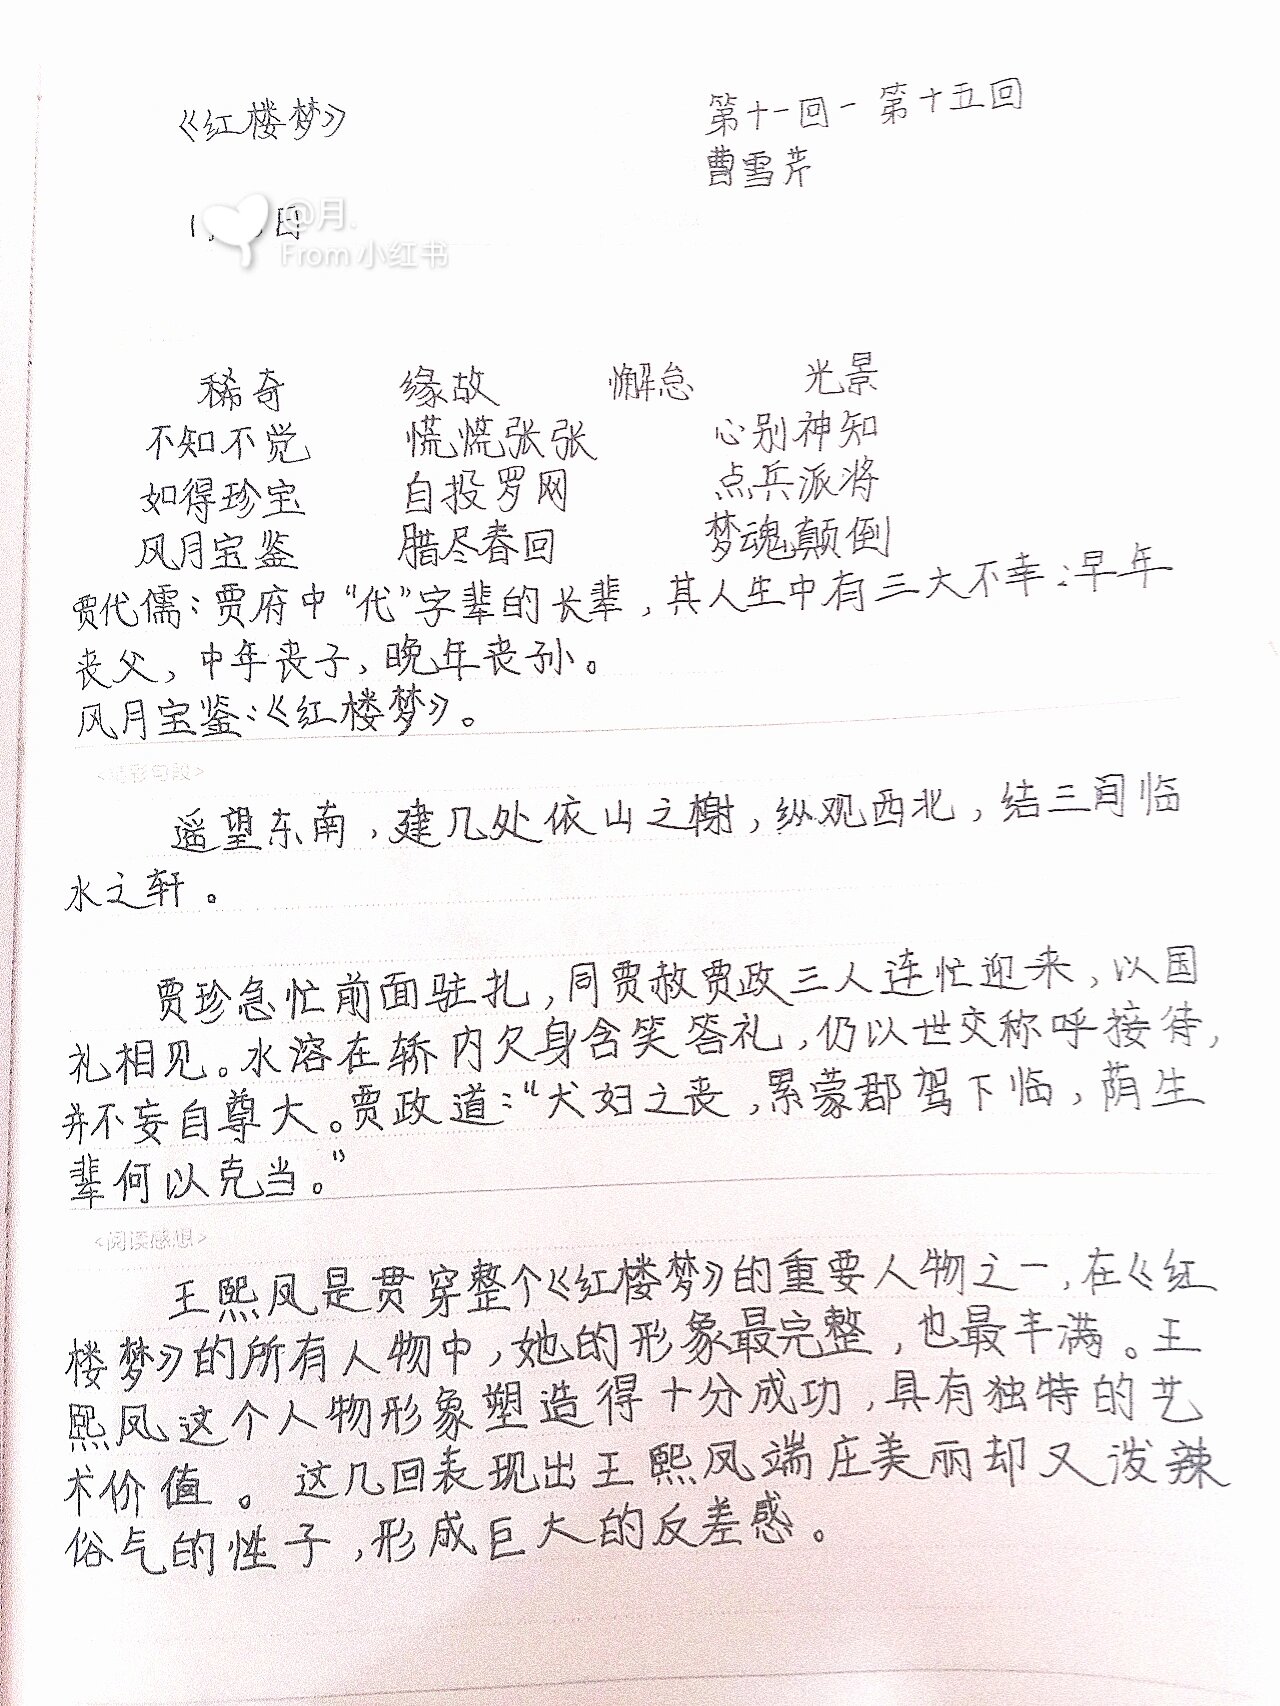 《红楼梦》 第十一回-第十五回
曹雪芹
日
@月.
From 小红书
稀奇 缘故 懈怠 光景
不知不觉 慌慌张张 心别神知
如得珍宝 自投罗网 点兵派将
风月宝鉴 腊尽春回 梦魂颠倒
贾代儒：贾府中“代”字辈的长辈，其人生中有三大不幸：早年
丧父，中年丧子，晚年丧孙。
风月宝鉴：《红楼梦》。
<精彩句段>
遥望东南，建几处依山之榭，纵观西北，结三间临
水之轩。
贾珍急忙前面驻扎，同贾赦贾政三人连忙迎来，以国
礼相见。水溶在轿内欠身含笑答礼，仍以世交称呼接待，
并不妄自尊大。贾政道：“犬妇之丧，累蒙郡驾下临，荫生
辈何以克当。”
<阅读感想>
王熙凤是贯穿整个《红楼梦》的重要人物之一，在《红
楼梦》的所有人物中，她的形象最完整，也最丰满。王
熙凤这个人物形象塑造得十分成功，具有独特的艺
术价值。这几回表现出王熙凤端庄美丽却又泼辣
俗气的性子，形成巨大的反差感。